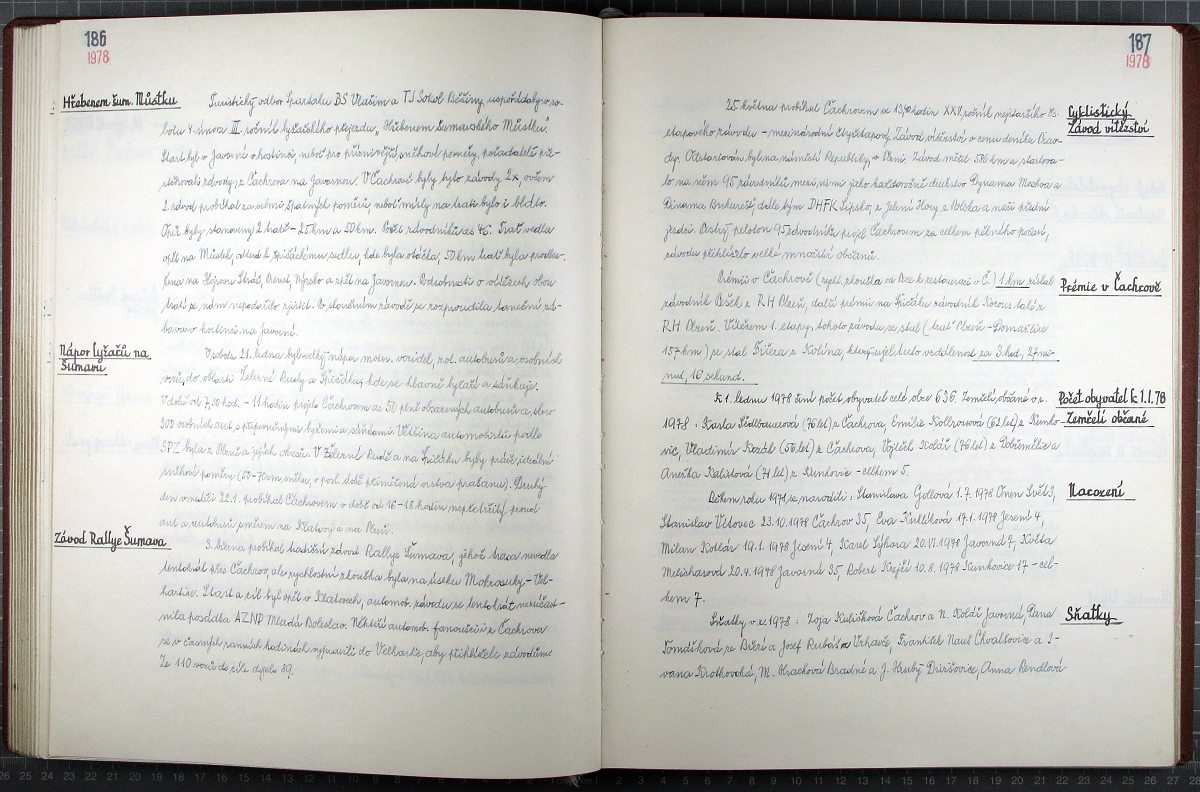 186
1978
Hřebenem šum. Můstku
Turistický odbor Spartaku BS Vlašim a TJ Sokol Běšiny uspořádaly v so-
botu 4. února III. ročník lyžařského přejezdu „Hřebenem šumavského Můstku."
Start byl v Javorné u hostince, neboť pro příznivější sněhové poměry, pořadatelé pře-
stěhovali závody z Čachrova na Javornou. V Čachrově byly tyto závody 2x, ovšem
2. závod probíhal za velmi špatných poměrů, neboť místy na trati bylo i bláto.
Opět byly stanoveny 2 tratě - 25 km a 50 km. Počet závodníků as 45. Trať vedla
opět na Můstek, odtud k Špičáckému sedlu, kde byla otáčka, 50 km trať byla prodlou-
žena na Hojsovu Stráž, Brout, Výpalo a zpět na Javornou. Podrobnosti o vítězích obou
tratí se nám nepodařilo zjistit. Po skončení závodu se rozproudila taneční zá-
bava v hostinci na Javorné.
Nápor lyžařů na
Šumavu
V sobotu 21. ledna byl velký nápor motor. vozidel, vč. autobusů a osobních
vozů, do oblasti Železné Rudy a Špičáku, kde se hlavně lyžaří a sáňkuje.
V době od 7,30 hod. - 11 hodin projelo Čachrovem as 50 plně obsazených autobusů a skoro
300 osobních aut, s připevněnými lyžemi a sáňkami. Většina automobilistů podle
SPZ byla z Plzně a jejich okresů. V Železné Rudě a na Špičáku byly právě ideální
sněhové poměry (50-70 cm sněhu, v posl. době přiměřená vrstva prašanu). Druhý
den v neděli 22.1. probíhal Čachrovem v době od 16-18 hodin nepřetržitý proud
aut a autobusů směrem na Klatovy a na Plzeň.
Závod Rallye Šumava
3. března probíhal tradiční závod Rallye Šumava, jehož trasa nevedla
tentokrát přes Čachrov, ale rychlostní zkouška byla na úseku Mokrosuky - Vel-
hartice. Start a cíl byl opět v Klatovech, automob. závodu se tentokrát nezúčast-
nila posádka AZNP Mladá Boleslav. Někteří automob. fanoušci z Čachrova
se v časných ranních hodinách vypravili do Velhartic, aby přihlíželi závodům.
Ze 110 vozů do cíle dojelo 89.
187
1978
Cyklistický
Závod vítězství
25 května probíhal Čachrovem ve 13,40 hodin XXX. ročník nejstaršího čs.
etapového závodu - mezinárodní čtyřetapový Závod vítězství o cenu deníku Prav-
dy. Odstartován byl na náměstí Republiky v Plzni. Závod měřil 516 km a startova-
lo na něm 95 závodníků, mezi nimi jako každoročně družstvo Dynama Moskva a
Dinama Bukurešť, dále tým DHFK Lipsko, z Jelení Hory z Polska a naši přední
jezdci. Pestrý peloton 95 závodníků projel Čachrovem za celkem pěkného počasí,
závodu přihlíželo velké množství občanů.
Prémie v Čachrově
Prémii v Čachrově (rychl. zkouška od Brck k restauraci v Č.) 1 km získal
závodník Pošek z RH Plzeň, další prémii na Špičáku závodník Korous také z
RH Plzeň. Vítězem 1. etapy tohoto závodu se stal (trať Plzeň - Domažlice
157 km) se stal Fričera z Kolína, který ujel tuto vzdálenost za 3 hod., 27 mi-
nut, 16 sekund.
Počet obyvatel k 1.1.78
K 1. lednu 1978 činí počet obyvatel celé obce 636. Zemřelí občané v r.
Zemřelí občané
1978: Karla Sedlbauerová (76 let) z Čachrova, Emilie Kollrosová (62 let) z Kunko-
vic, Vladimír Kozák (56 let) z Čachrova, Vojtěch Kolář (76 let) z Dobřemělic a
Anežka Kalistová (71 let) z Kunkovic - celkem 5.
Narození
Během roku 1978 se narodili: Stanislava Gollová 1.7.1978 Onen Svět 3,
Stanislav Vltovec 23.10.1978 Čachrov 35, Eva Kuklíková 17.1.1978 Jesení 4,
Milan Kotlár 19.1.1978 Jesení 4, Karel Sýkora 20.VI.1978 Javorná 7, Květa
Melicharová 20.4.1978 Javorná 35, Robert Krejčí 10.8.1978 Kunkovice 17 - cel-
kem 7.
Sňatky
Sňatky v r. 1978: Zoja Kuličková Čachrov a N. Kolář Javorná, Dana
Tomášková ze Bíží a Josef Rubáš z Vrhavče, František Nauš Chvalšovice a I-
vana Krotkovská, M. Hrachová Bradné a J. Hrubý Důrišovice, Anna Rendlová